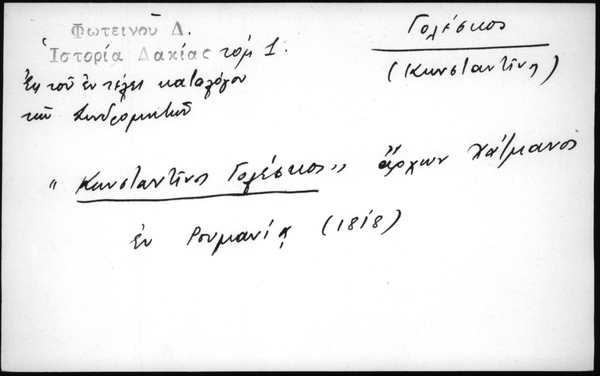 Φωτεινοῦ Δ.
Ἱστορία Δακίας τόμ 1.
Ἐκ τοῦ ἐν τέλει καταλόγου
τῶν Συνδρομητῶν
Γολέσκος
(Κωνσταντῖνος)
"Κωνσταντῖνος Γολέσκος" ἄρχων χάτμανος
ἐν Ρουμανίᾳ (1818)